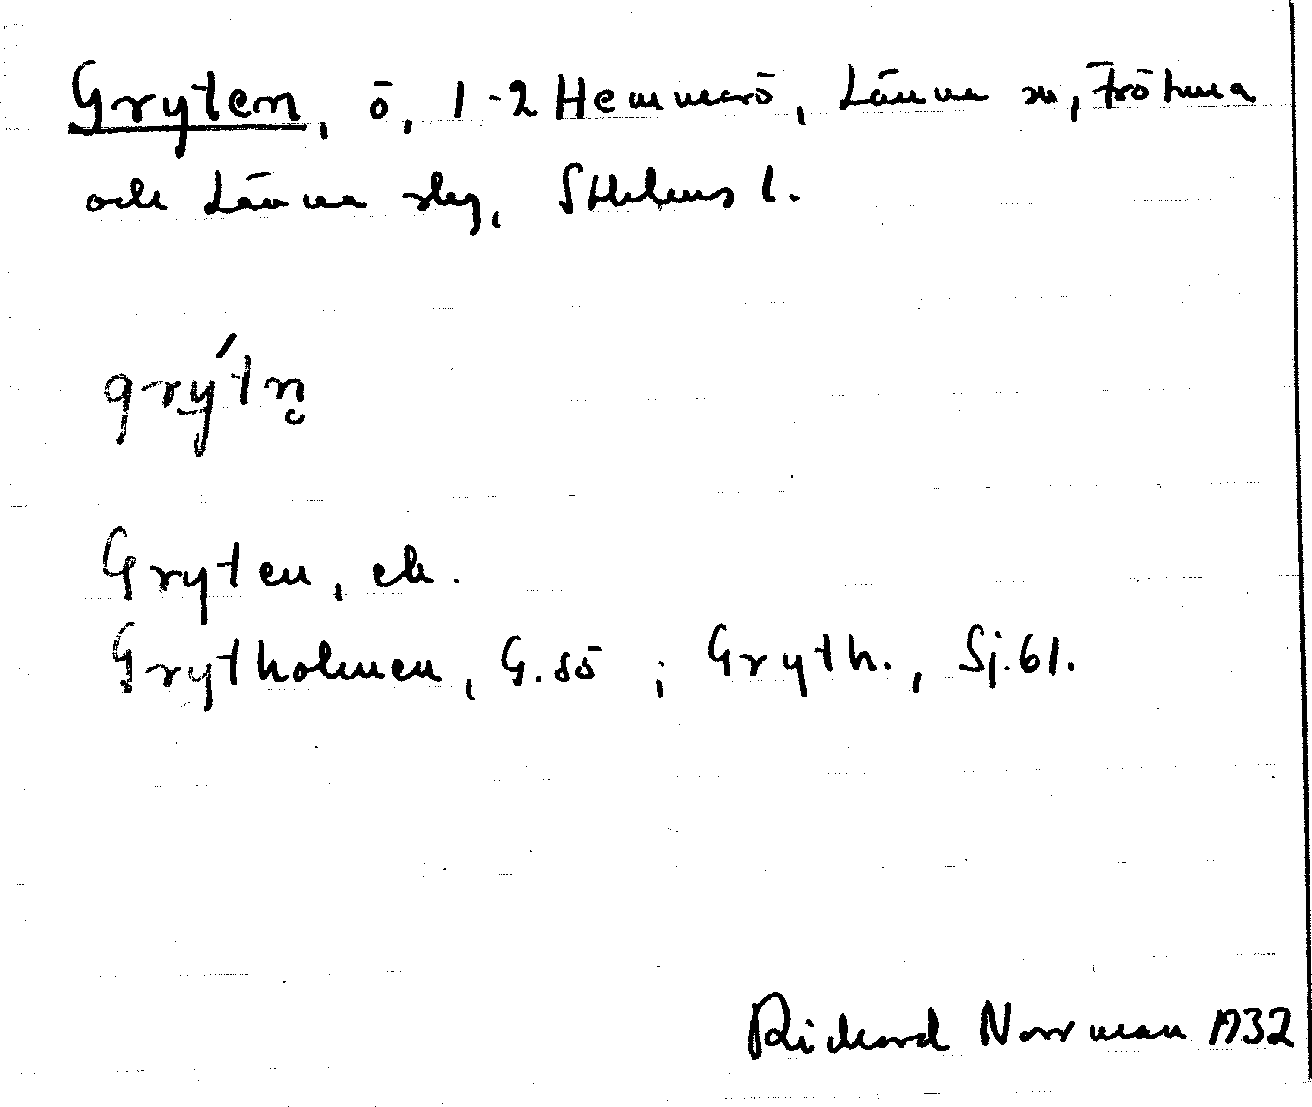 Gryten, ö, 1-2 Hemmarö, Länna sn, Frötuna
och Länna slg, Sthlms l.
grýtn̥
Gryten, ek.
Grytholmen, G. 85 ; Gryth., Sj. 61.
Richard Norrman 1932